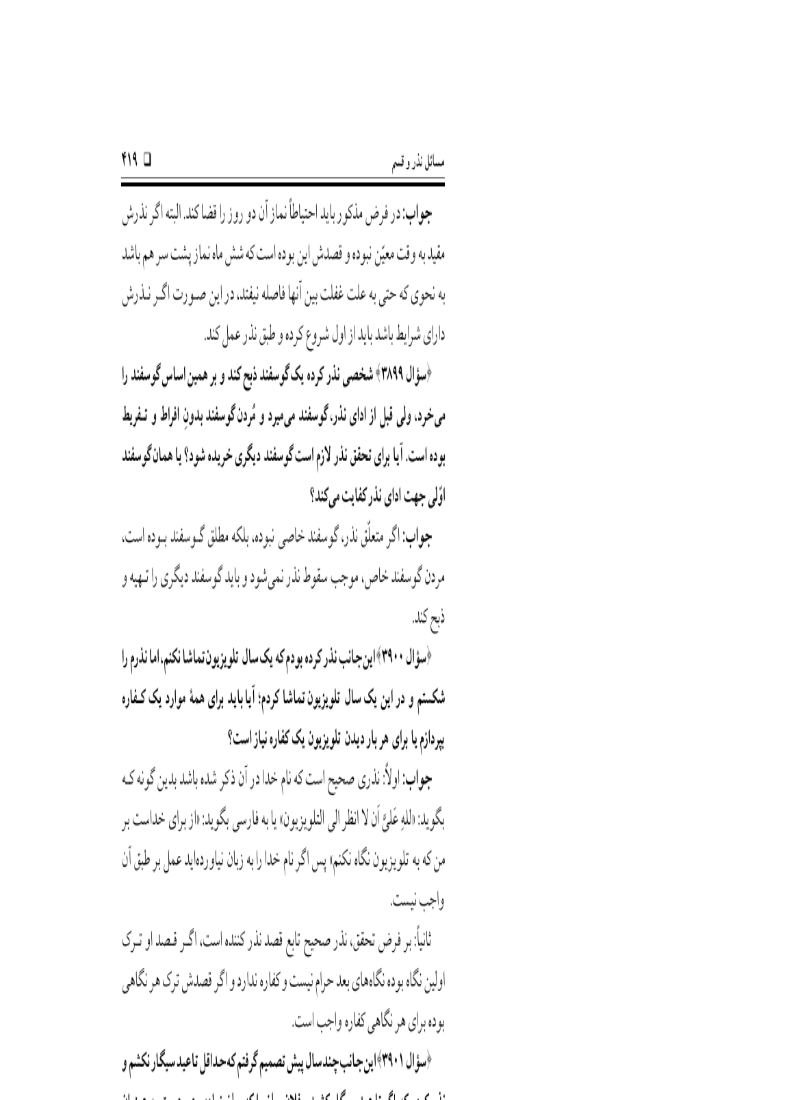 مسائل نذر و قسم □ ۴۱۹
جواب: در فرض مذکور باید احتیاطاً نماز آن دو روز را قضا کند. البته اگر نذرش
مقید به وقت معیّن نبوده و قصدش این بوده است که شش ماه نماز پشت سر هم باشد
به نحوی که حتی به علت غفلت بین آنها فاصله نیفتد، در این صورت اگر نذرش
دارای شرایط باشد باید از اول شروع کرده و طبق نذر عمل کند.
﴿سؤال ۳۸۹۹﴾ شخصی نذر کرده یک گوسفند ذبح کند و بر همین اساس گوسفند را
می‌خرد، ولی قبل از ادای نذر، گوسفند می‌میرد و مُردن گوسفند بدونِ افراط و تفریط
بوده است. آیا برای تحقق نذر لازم است گوسفند دیگری خریده شود؟ یا همان گوسفند
اوّلی جهت ادای نذر کفایت می‌کند؟
جواب: اگر متعلّق نذر، گوسفند خاصی نبوده، بلکه مطلق گوسفند بوده است،
مردن گوسفند خاص، موجب سقوط نذر نمی‌شود و باید گوسفند دیگری را تهیه و
ذبح کند.
﴿سؤال ۳۹۰۰﴾ این‌جانب نذر کرده بودم که یک سال تلویزیون تماشا نکنم، اما نذرم را
شکستم و در این یک سال تلویزیون تماشا کردم؛ آیا باید برای همهٔ موارد یک کفاره
بپردازم یا برای هر بار دیدن تلویزیون یک کفاره نیاز است؟
جواب: اولاً: نذری صحیح است که نام خدا در آن ذکر شده باشد بدین گونه که
بگوید: «للهِ عَلیَّ اَن لا انظر الی التلویزیون» یا به فارسی بگوید: «از برای خداست بر
من که به تلویزیون نگاه نکنم» پس اگر نام خدا را به زبان نیاورده‌اید عمل بر طبق آن
واجب نیست.
ثانیاً: بر فرض تحقق، نذر صحیح تابع قصد نذر کننده است، اگر قصد او ترک
اولین نگاه بوده نگاه‌های بعد حرام نیست و کفاره ندارد و اگر قصدش ترک هر نگاهی
بوده برای هر نگاهی کفاره واجب است.
﴿سؤال ۳۹۰۱﴾ این‌جانب چند سال پیش تصمیم گرفتم که حداقل تا عید سیگار نکشم و